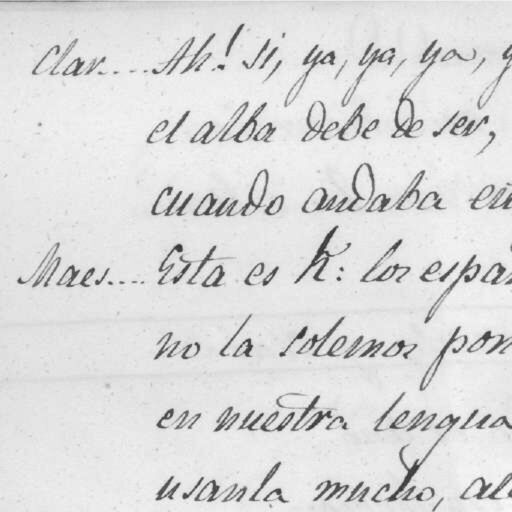 Clar.... Ah! si, ya, ya, ya, y
el alba debe de ser,
cuando andaba en
Maes.... Esta es K: los espa
no la solemos pon
en nuestra lengua
usanla mucho, al